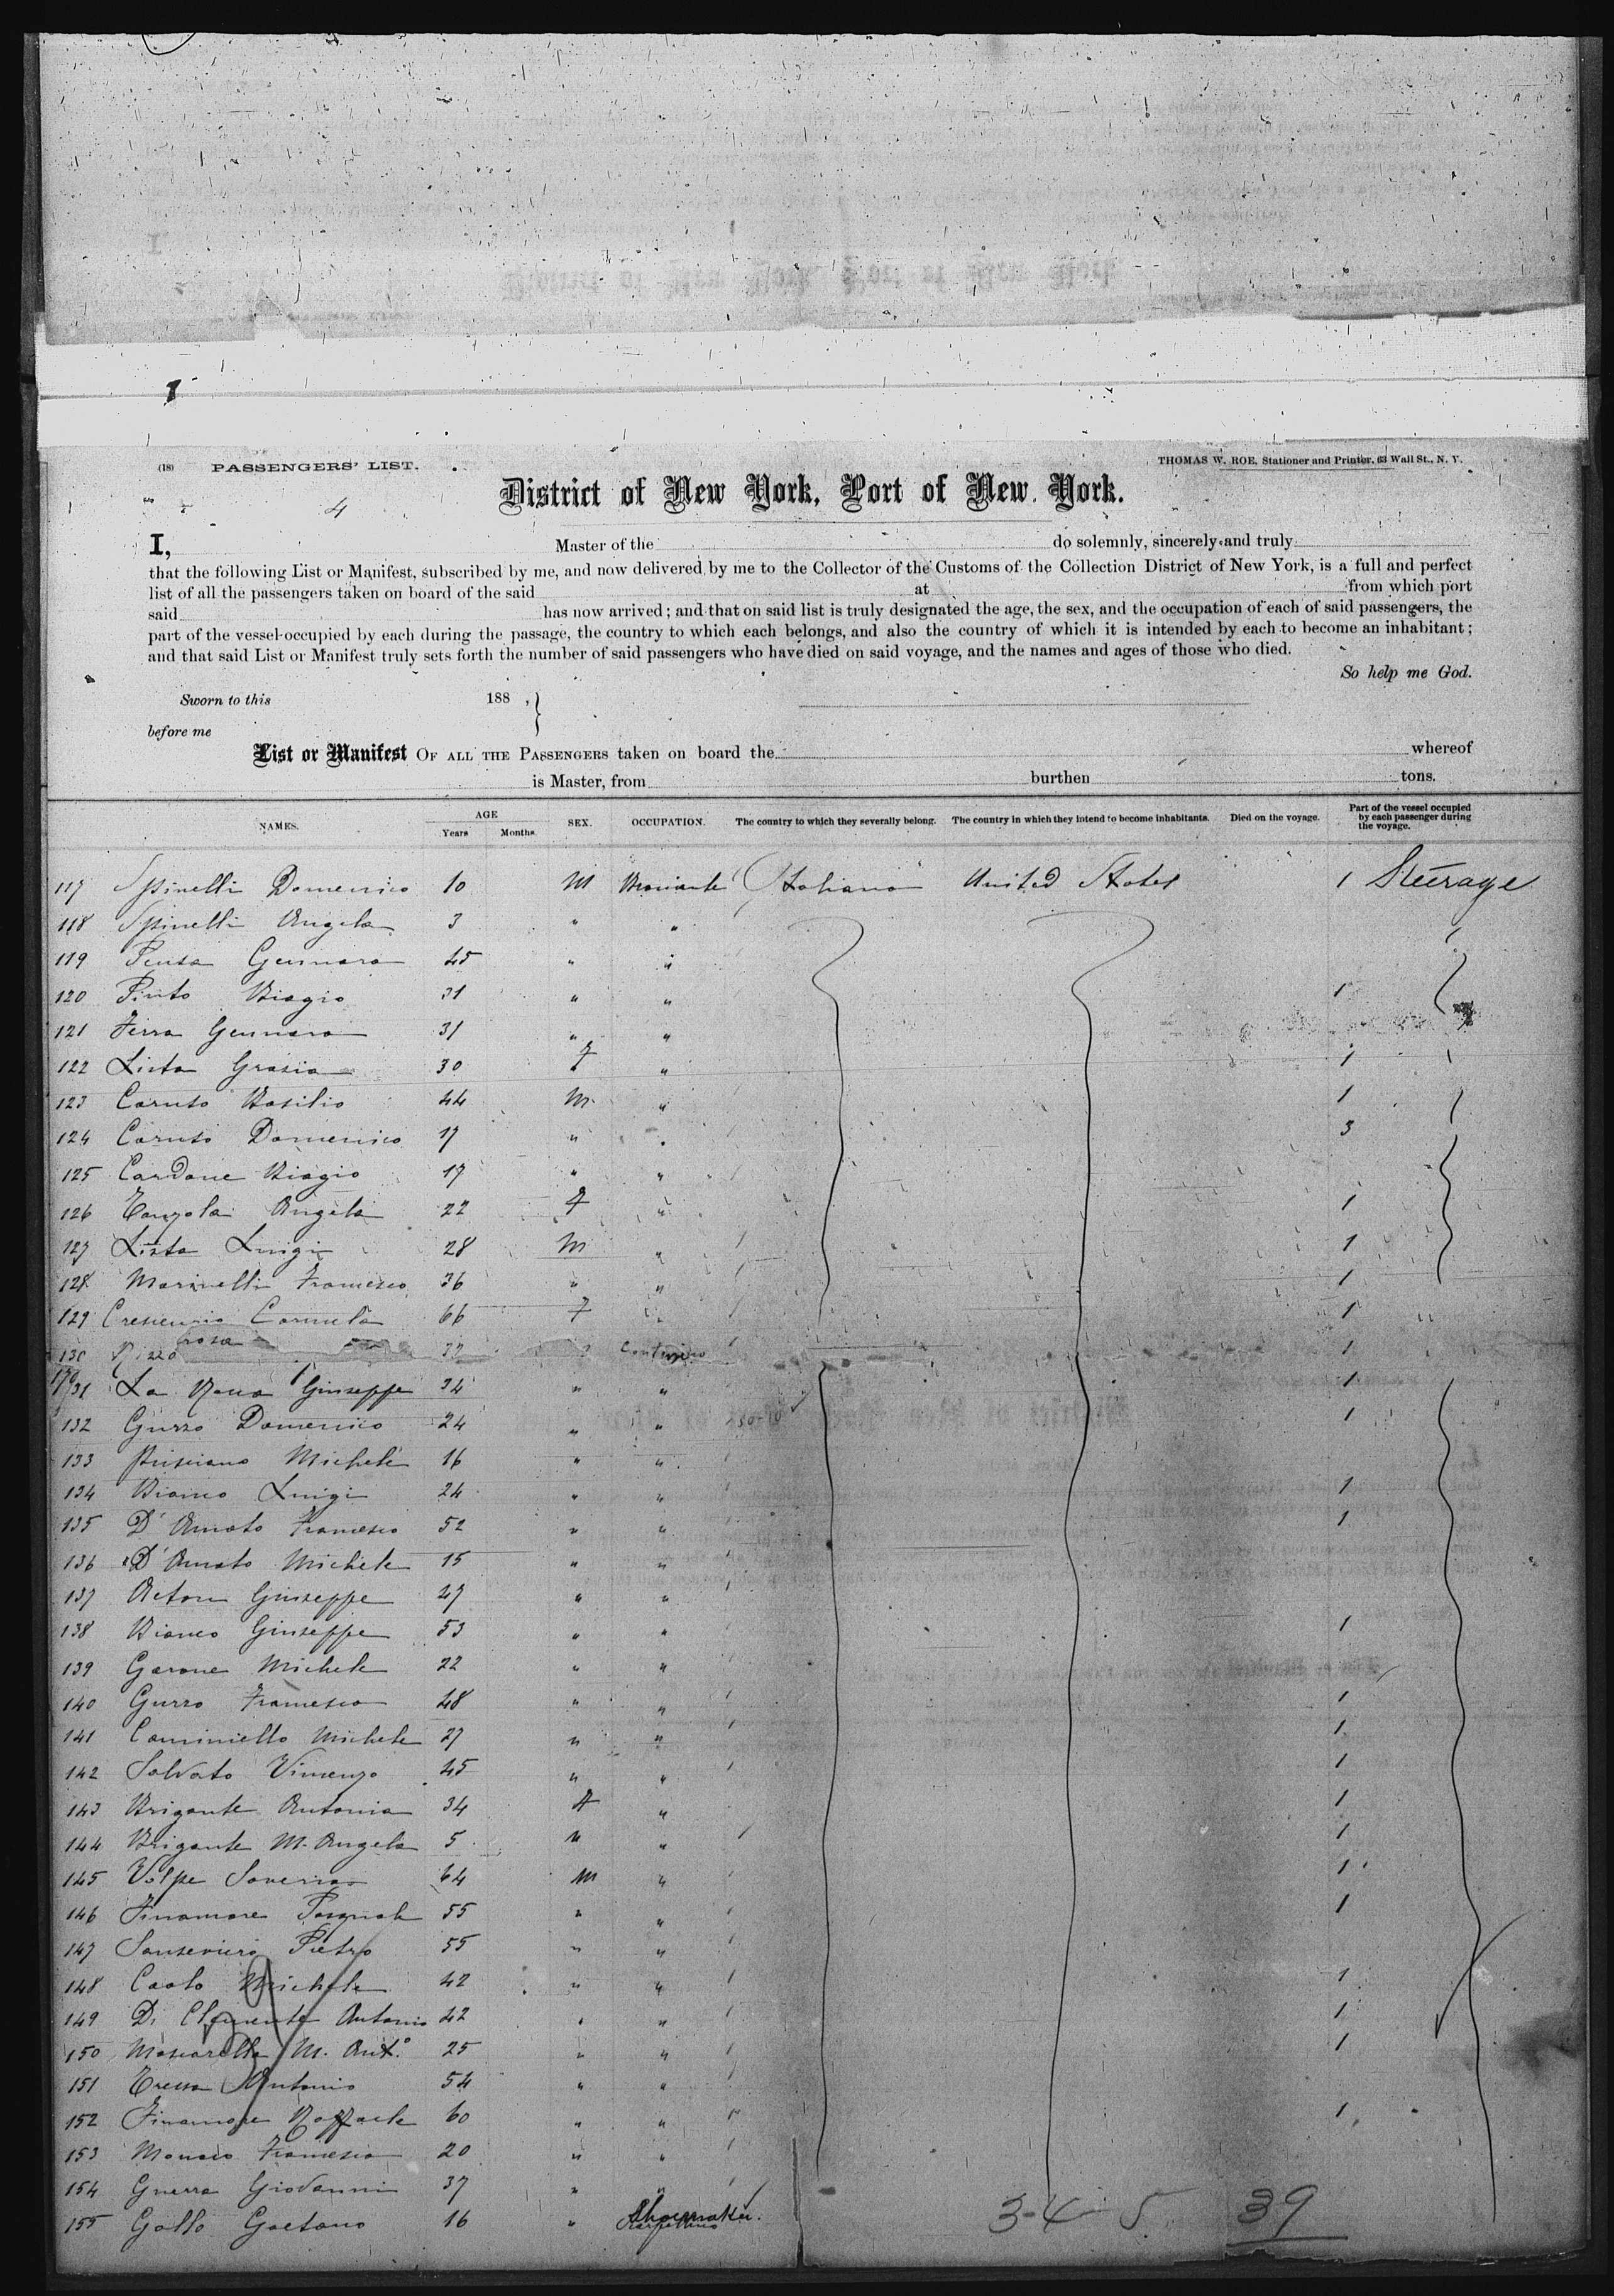 (18) PASSENGERS' LIST.
THOMAS W. ROE, Stationer and Printer, 63 Wall St., N. Y.
4
District of New York, Port of New York.
I, Master of the do solemnly, sincerely and truly
that the following List or Manifest, subscribed by me, and now delivered by me to the Collector of the Customs of the Collection District of New York, is a full and perfect
list of all the passengers taken on board of the said at from which port
said has now arrived; and that on said list is truly designated the age, the sex, and the occupation of each of said passengers, the
part of the vessel occupied by each during the passage, the country to which each belongs, and also the country of which it is intended by each to become an inhabitant;
and that said List or Manifest truly sets forth the number of said passengers who have died on said voyage, and the names and ages of those who died.
So help me God.
Sworn to this 188 , }
before me
List or Manifest OF ALL THE PASSENGERS taken on board the whereof
is Master, from burthen tons.
NAMES. AGE Years Months. SEX. OCCUPATION. The country to which they severally belong. The country in which they intend to become inhabitants. Died on the voyage. Part of the vessel occupied by each passenger during the voyage.
117 Spinelli Domenico 10 M Italiano United States 1 Steerage
118 Spinelli Angela 3 " "
119 Gennaro 45 " "
120 Pinto Biagio 31 " " 1
121 Ferra Gennaro 31 " "
122 Lista Grazia 30 F " 1
123 Caruso Basilio 44 M " 1
124 Caruso Domenico 17 " " 3
125 Cardone Biagio 17 " "
126 Angela 22 F " 1
127 Lista Luigi 28 M " 1
128 Marinelli Francesco 36 " " 1
129 Crescenzio Carmela 66 F " 1
130 Rizzo rosa 37 1
131 La Giuseppe 34 " " 1
132 Guzzo Domenico 24 " " 1
133 Prisciano Michele 16 " "
134 Bianco Luigi 24 " " 1
135 D'Amato Francesco 52 " " 1
136 D'Amato Michele 15 " "
137 Giuseppe 27 " "
138 Bianco Giuseppe 53 " " 1
139 Garone Michele 22 " "
140 Guzzo Francesco 48 " " 1
141 Michele 27 " " 1
142 Salvato Vincenzo 45 " " 1
143 Brigante Antonia 34 F " 1
144 Brigante M. Angela 5 " " 1
145 Volpe Saverino 64 M " 1
146 Finamore Pasquale 55 " " 1
147 Sanseviero Pietro 55 " "
148 Michele 42 " " 1
149 Di Clemente Antonio 42 " " 1
150 Mascarella M. Ant.º 25 " " 1
151 Antonio 54 " "
152 Finamore Raffaele 60 " " 1
153 Monaco Francesco 20 " "
154 Guerra Giovanni 37 " "
155 Gallo Gaetano 16 " Shoemaker.
3-4-5 39